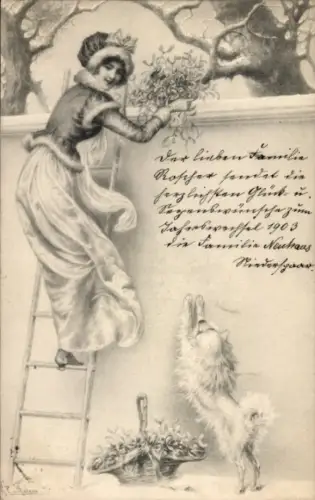 Der lieben Familie
Roscher sendet die
herzlichsten Glück u.
Segenswünsche zum
Jahreswechsel 1903
die Familie Neuhaus
Niederspaar.